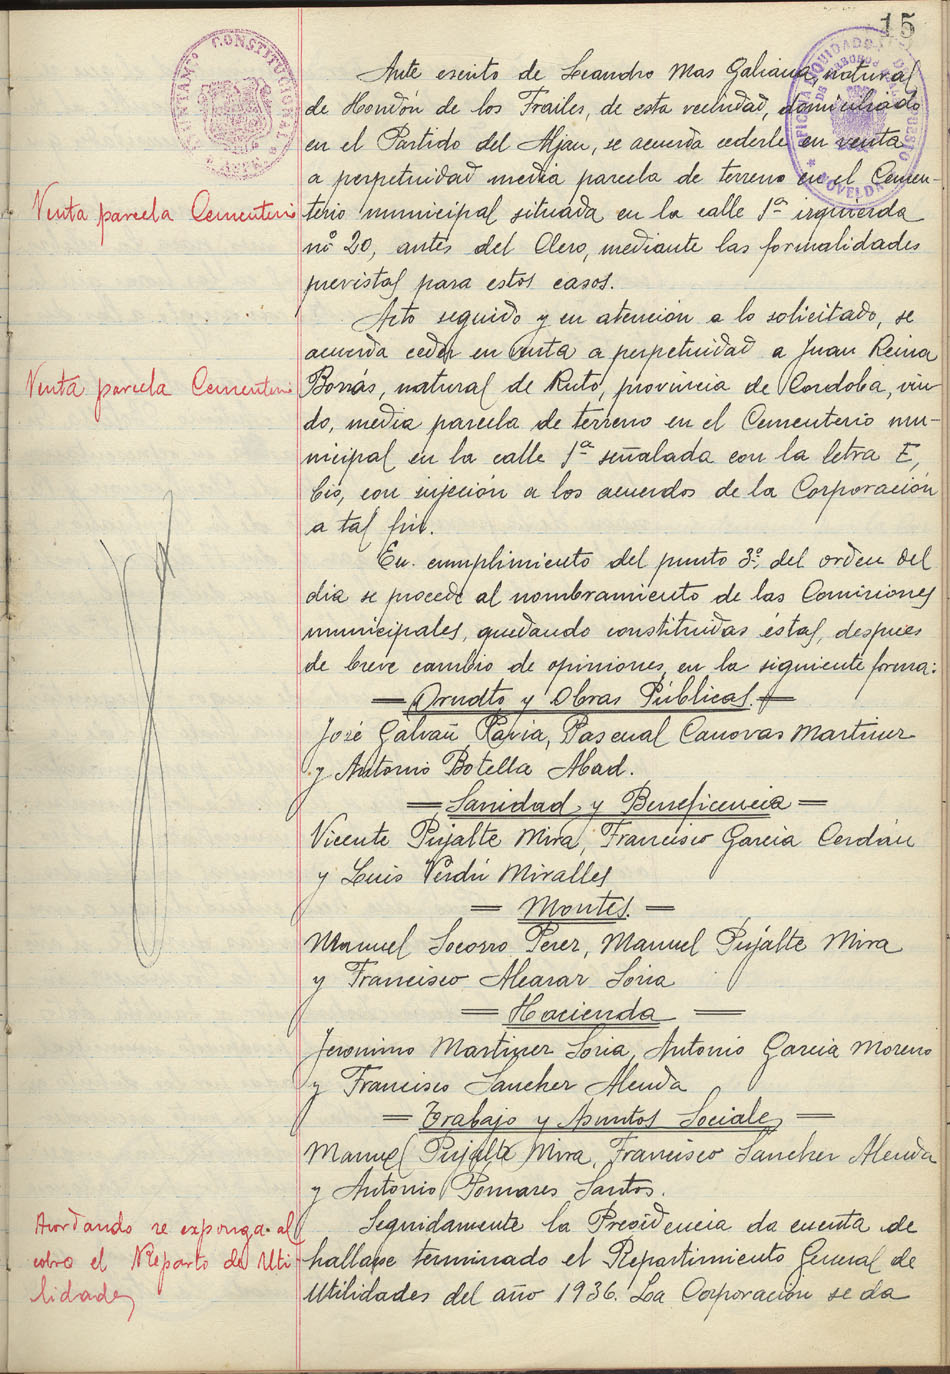 15
AYUNTAMTº CONSTITUCIONAL * ASPE *
OFICINA LIQUIDADORA DEL IMPUESTO * NOVELDA *
Ante escrito de Leandro Mas Galiana, natural
de Hondón de los Frailes, de esta vecindad, domiciliado
en el Partido del Aljau, se acuerda cederle en venta
a perpetuidad media parcela de terreno en el Cemen-
Venta parcela Cementerio
terio municipal situada en la calle 1ª izquierda
nº 20, antes del Clero, mediante las formalidades
previstas para estos casos.
Acto seguido y en atención a lo solicitado, se
acuerda ceder en venta a perpetuidad a Juan Reina
Venta parcela Cementerio
Borrás, natural de Ruto, provincia de Cordoba, viu-
do, media parcela de terreno en el Cementerio mu-
nicipal en la calle 1ª señalada con la letra E,
bis, con sujeción a los acuerdos de la Corporación
a tal fin.
En cumplimiento del punto 3º del orden del
dia se procede al nombramiento de las Comisiones
municipales, quedando constituidas éstas, despues
de breve cambio de opiniones, en la siguiente forma:
= Ornato y Obras Públicas. =
José Galvañ Pavia, Pascual Canovas Martinez
y Antonio Botella Abad.
= Sanidad y Beneficencia =
Vicente Pujalte Mira, Francisco Garcia Cerdán
y Luis Verdú Miralles
= Montes. =
Manuel Socorro Perez, Manuel Pujalte Mira
y Francisco Alcaraz Soria
= Hacienda =
Jeronimo Martinez Soria, Antonio Garcia Moreno
y Francisco Sanchez Alenda
= Trabajo y Asuntos Sociales =
Manuel Pujalte Mira, Francisco Sanchez Alenda
y Antonio Pomares Santos.
Acordando se exponga al
cobro el Reparto de Uti-
lidades
Seguidamente la Presidencia da cuenta de
hallarse terminado el Repartimiento General de
Utilidades del año 1936. La Corporación se da